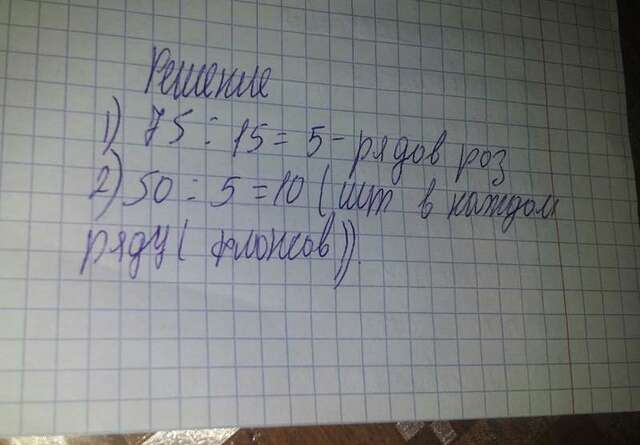 Решение
1) 75 : 15 = 5 - рядов роз
2) 50 : 5 = 10 (шт в каждом
ряду ( флоксов)).